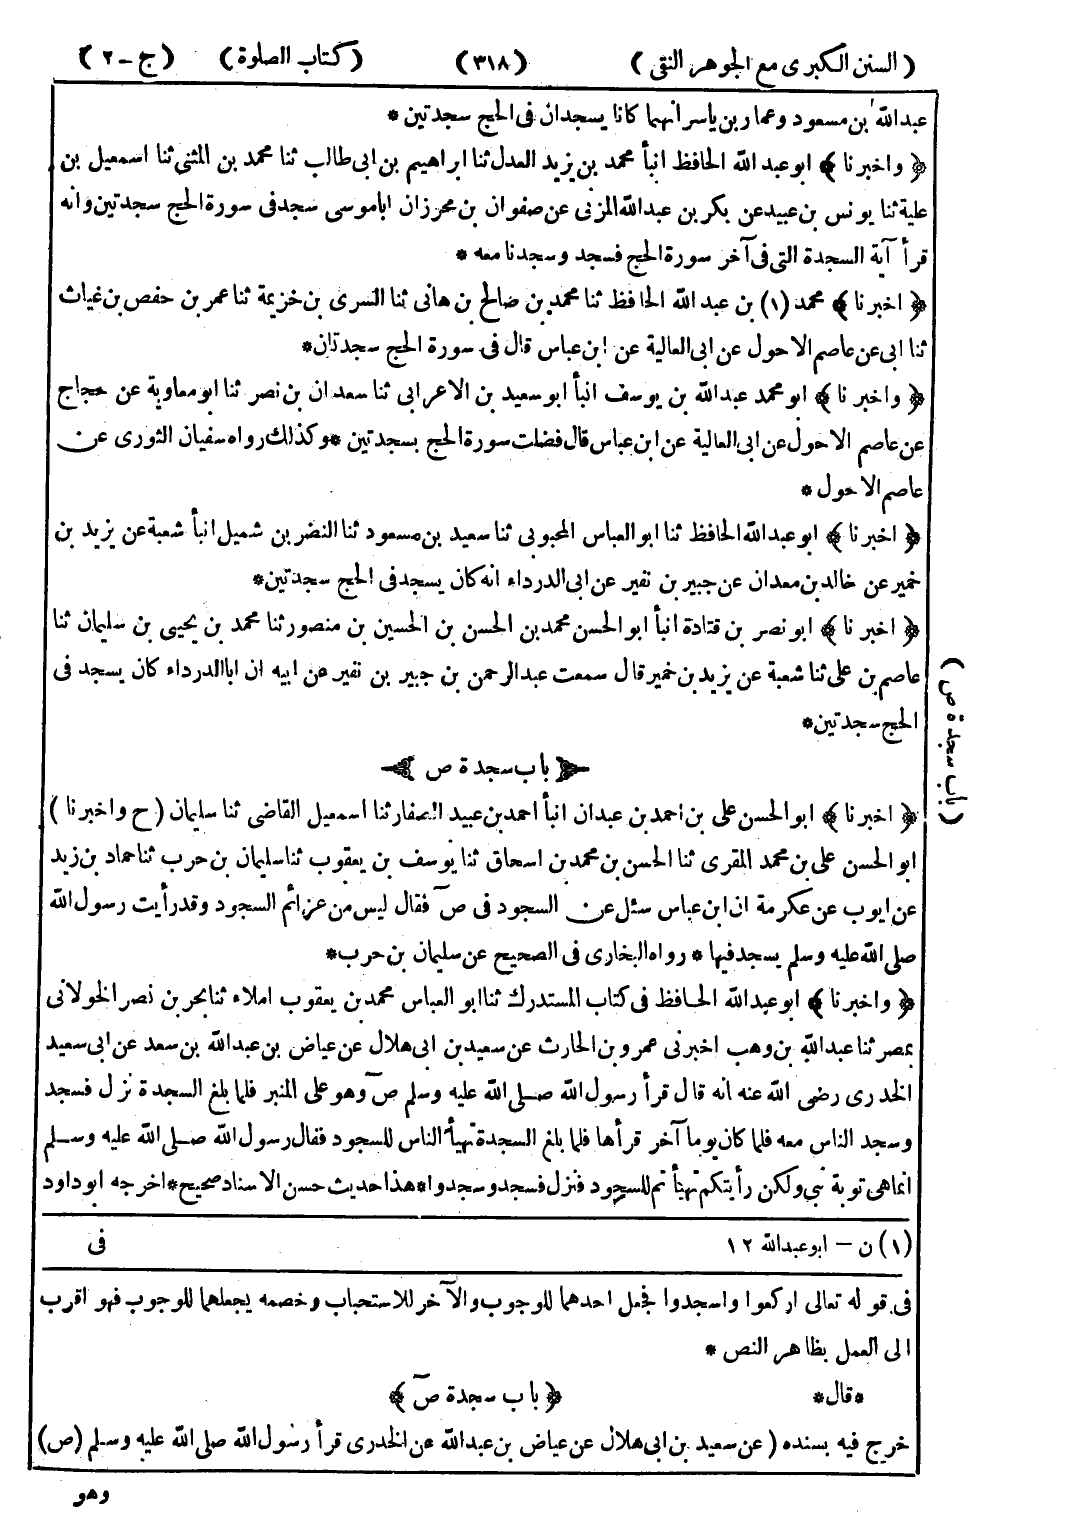 (السنن الكبرى مع الجوهر النقى) (٣١٨) (كتاب الصلوة) (ج-٢)
عبدالله بن مسعود وعمار بن ياسر انهما كانا يسجدان فى الحج سجدتين *
﴿ واخبرنا ﴾ ابو عبد الله الحافظ انبأ محمد بن يزيد العدل ثنا ابراهيم بن ابى طالب ثنا محمد بن المثنى ثنا اسمعيل بن
علية ثنا يونس بن عبيد عن بكر بن عبدالله المزنى عن صفوان بن محرز ان اباموسى سجد فى سورة الحج سجدتين وانه
قرأ آية السجدة التى فى آخر سورة الحج فسجد وسجدنا معه *
﴿ اخبرنا ﴾ محمد (١) بن عبد الله الحافظ ثنا محمد بن صالح بن هانى ثنا السرى بن خزيمة ثنا عمر بن حفص بن غياث
ثنا ابى عن عاصم الاحول عن ابى العالية عن ابن عباس قال فى سورة الحج سجدتان*
﴿ واخبرنا ﴾ ابو محمد عبدالله بن يوسف انبأ ابو سعيد بن الاعرابى ثنا سعدان بن نصر ثنا ابو معاوية عن حجاج
عن عاصم الاحول عن ابى العالية عن ابن عباس قال فضلت سورة الحج بسجدتين *وكذلك رواه سفيان الثورى عن
عاصم الاحول *
﴿ اخبرنا ﴾ ابو عبدالله الحافظ ثنا ابو العباس المحبوبى ثنا سعيد بن مسعود ثنا النضر بن شميل انبأ شعبة عن يزيد بن
خمير عن خالد بن معدان عن جبير بن نفير عن ابى الدرداء انه كان يسجد فى الحج سجدتين*
﴿ اخبرنا ﴾ ابو نصر بن قتادة انبأ ابو الحسن محمد بن الحسن بن الحسين بن منصور ثنا محمد بن يحيى بن سليمان ثنا
عاصم بن على ثنا شعبة عن يزيد بن خمير قال سمعت عبدالرحمن بن جبير بن نفير عن ابيه ان اباالدرداء كان يسجد فى
الحج سجدتين*
﴿ باب سجدة ص ﴾
(باب سجدة ص)
﴿ اخبرنا ﴾ ابو الحسن على بن احمد بن عبدان انبأ احمد بن عبيد الصفار ثنا اسمعيل القاضى ثنا سليمان (ح واخبرنا)
ابو الحسن على بن محمد المقرى ثنا الحسن بن محمد بن اسحاق ثنا يوسف بن يعقوب ثنا سليمان بن حرب ثنا حماد بن زيد
عن ايوب عن عكرمة ان ابن عباس سئل عن السجود فى صٓ فقال ليس من عزائم السجود وقد رأيت رسول الله
صلى الله عليه وسلم يسجد فيها * رواه البخارى فى الصحيح عن سليمان بن حرب*
﴿ واخبرنا ﴾ ابو عبدالله الحافظ فى كتاب المستدرك ثنا ابو العباس محمد بن يعقوب املاء ثنا بحر بن نصر الخولانى
بمصر ثنا عبدالله بن وهب اخبرنى عمرو بن الحارث عن سعيد بن ابى هلال عن عياض بن عبدالله بن سعد عن ابى سعيد
الخدرى رضى الله عنه انه قال قرأ رسول الله صلى الله عليه وسلم صٓ وهو على المنبر فلما بلغ السجدة نزل فسجد
وسجد الناس معه فلما كان يوما آخر قرأها فلما بلغ السجدة تهيأ الناس للسجود فقال رسول الله صلى الله عليه وسلم
انما هى توبة نبى ولكن رأيتكم تهيأتم للسجود فنزل فسجد وسجدوا*هذا حديث حسن الاسناد صحيح*اخرجه ابو داود
(١) ن – ابو عبدالله ١٢ فى
فى قوله تعالى اركعوا واسجدوا فجعل احدهما للوجوب والآخر للاستحباب وخصمه يجعلهما للوجوب فهو اقرب
الى العمل بظاهر النص *
*قال* ﴿ باب سجدة صٓ ﴾
خرج فيه بسنده (عن سعيد بن ابى هلال عن عياض بن عبدالله عن الخدرى قرأ رسول الله صلى الله عليه وسلم (ص)
وهو